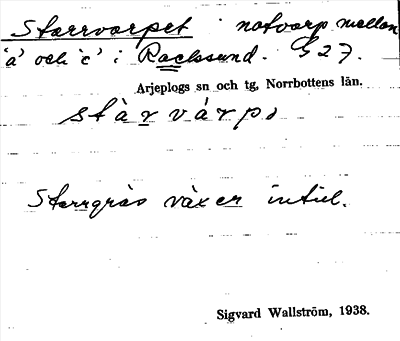 Starrvarpet notvarp mellan
'a' och 'c' i Racksund. G 27.
Arjeplogs sn och tg, Norrbottens län.
stàrvárpə
Starrgräs växer intill.
Sigvard Wallström, 1938.